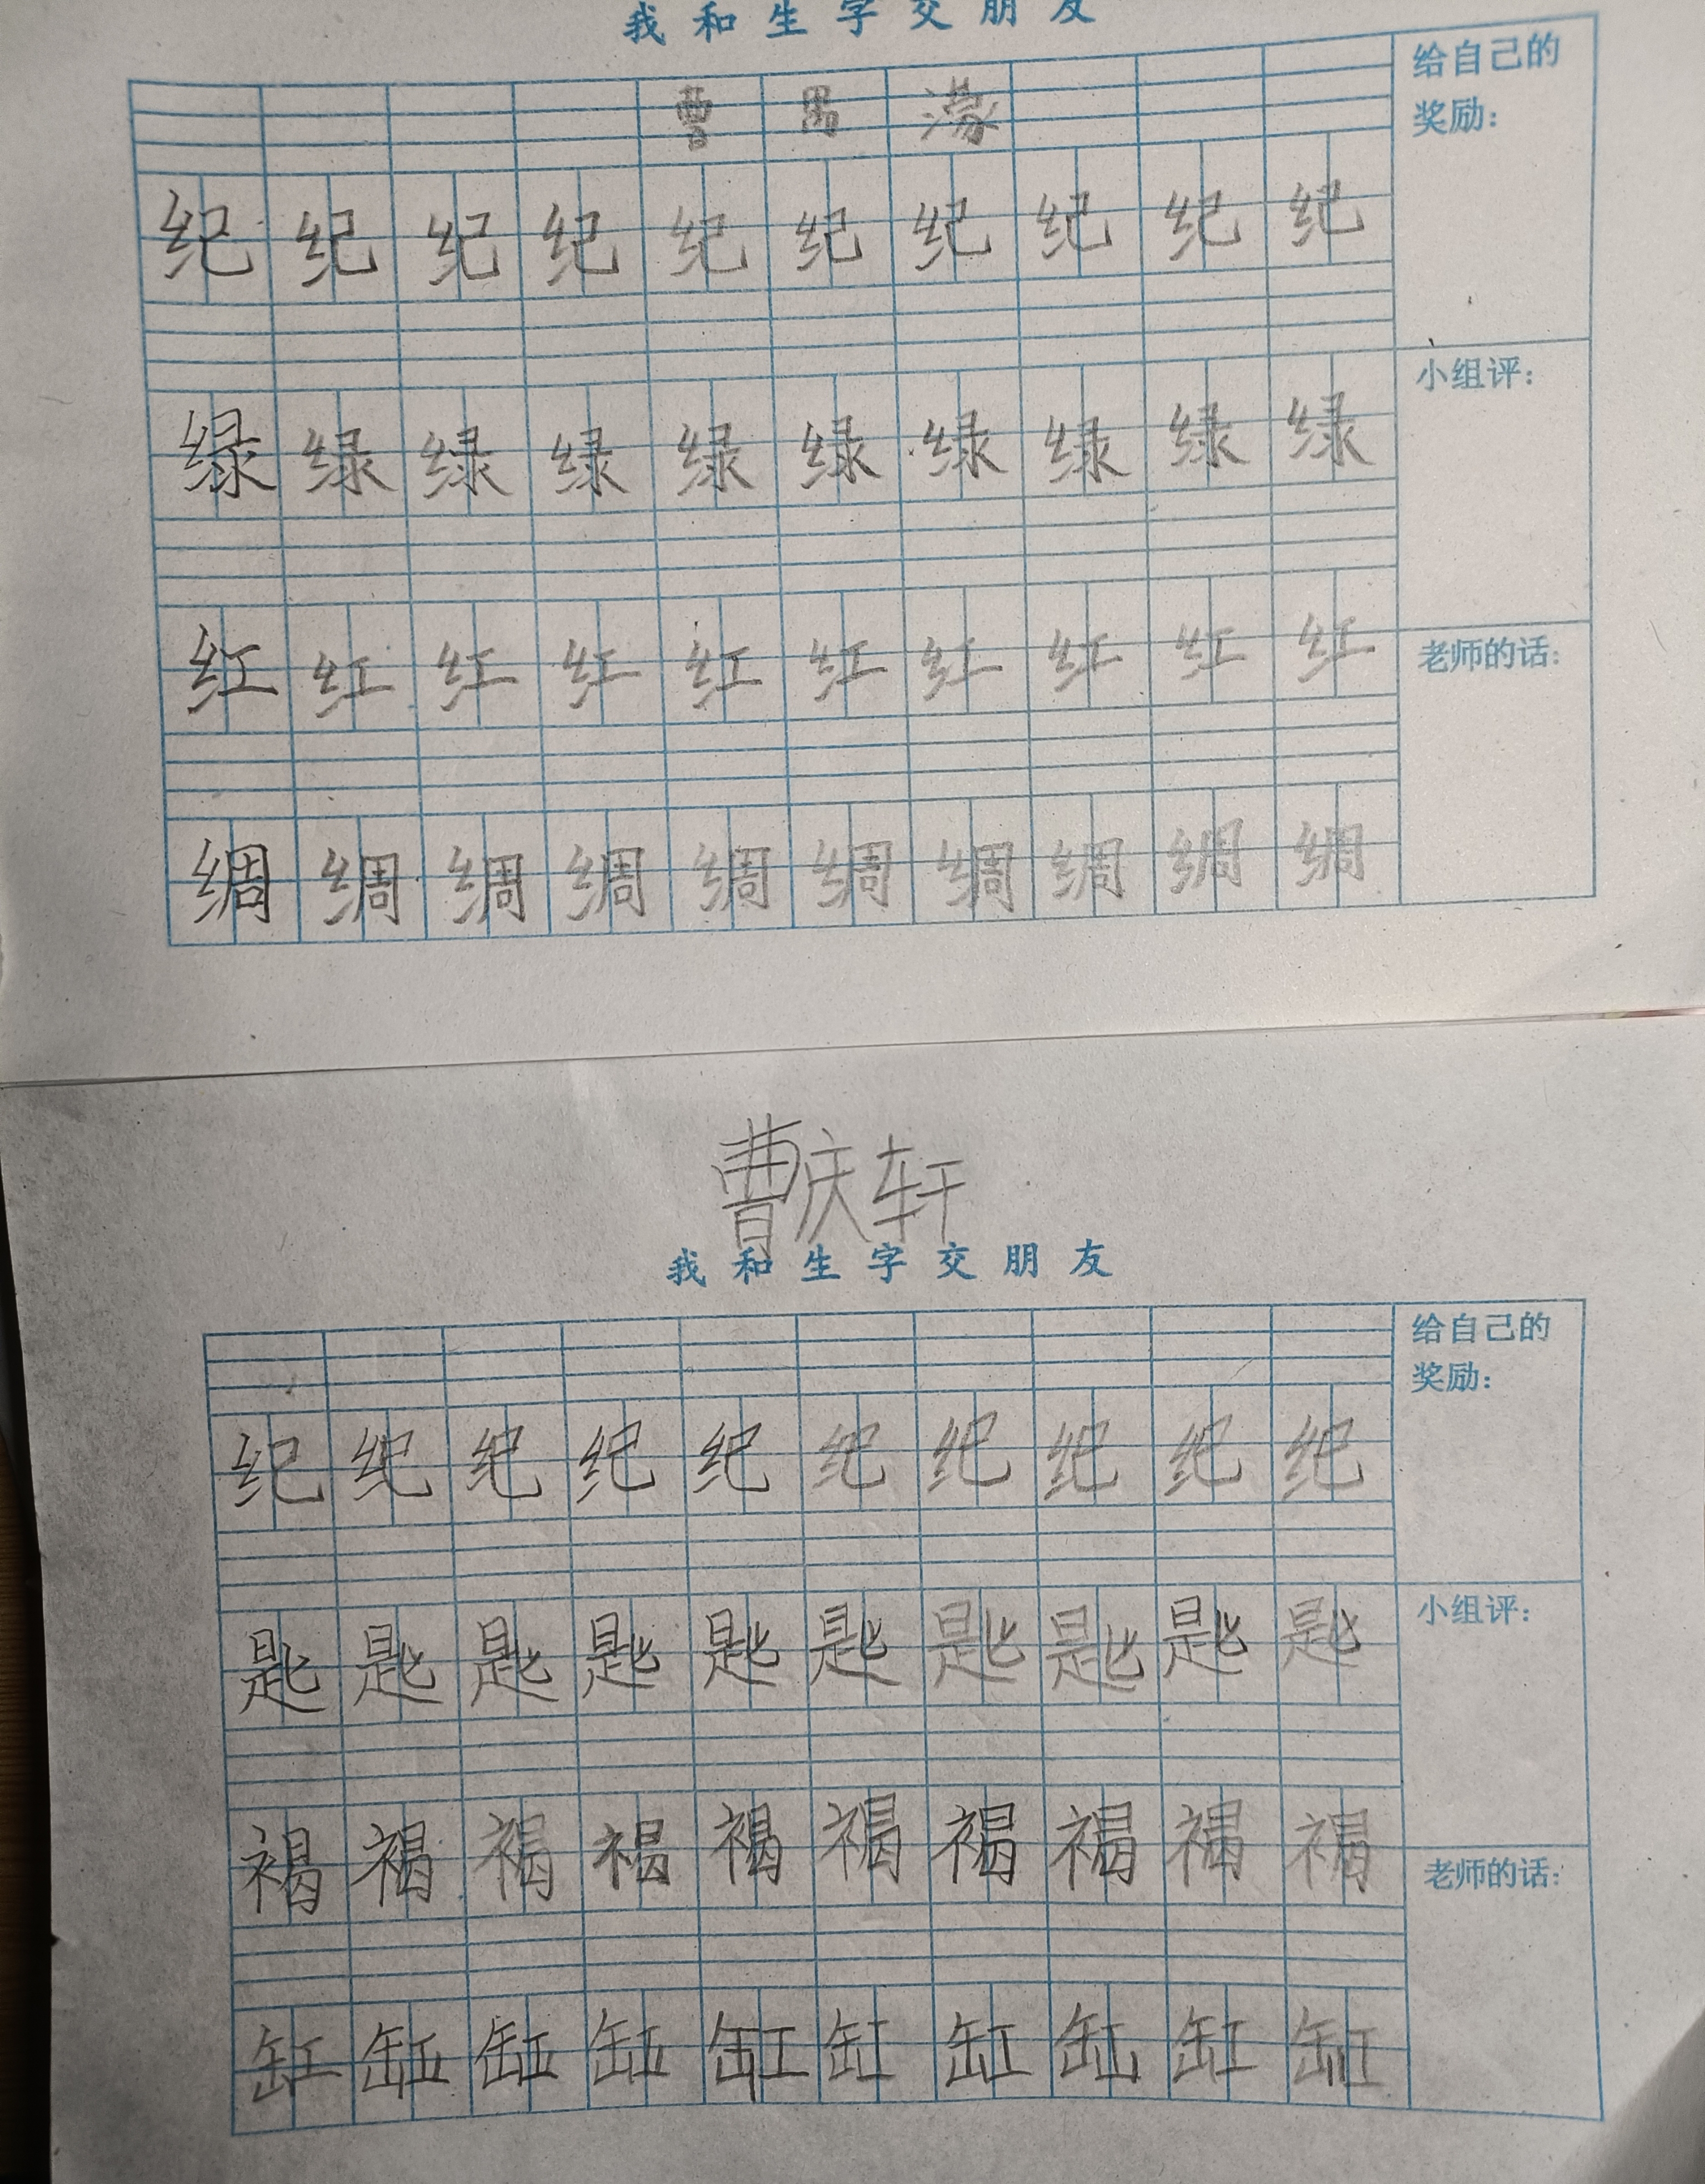 我和生字交朋友
给自己的
奖励：
曹 男 濛
纪 纪 纪 纪 纪 纪 纪 纪 纪 纪
小组评：
绿 绿 绿 绿 绿 绿 绿 绿 绿 绿
老师的话：
红 红 红 红 红 红 红 红 红 红
绸 绸 绸 绸 绸 绸 绸 绸 绸 绸
曹庆轩
我和生字交朋友
给自己的
奖励：
纪 纪 纪 纪 纪 纪 纪 纪 纪 纪
小组评：
匙 匙 匙 匙 匙 匙 匙 匙 匙 匙
老师的话：
褐 褐 褐 褐 褐 褐 褐 褐 褐 褐
缸 缸 缸 缸 缸 缸 缸 缸 缸 缸